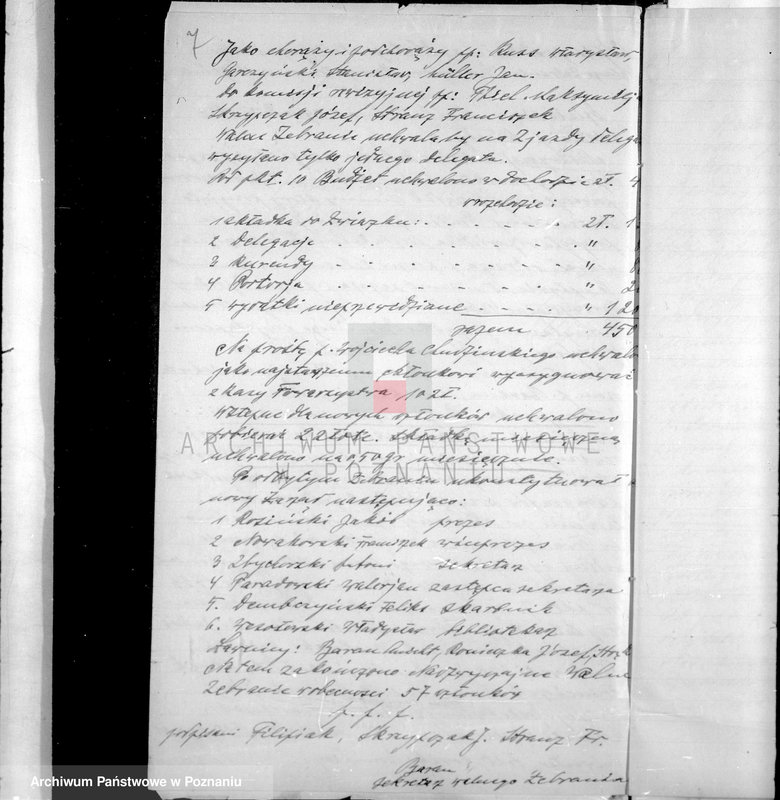 7
Jako chorąży i podchorąży pp: Kuss Władysław,
Garczyński Stanisław, Müller Jan.
Do Komisji rewizyjnej pp: Thiel
Skrzypczak Józef, Hranz Franciszek
Walne Zebranie uchwala by na Zjazdy
wysyłano tylko jednego delegata.
pkt. 10 Budżet uchwalono w dochodzie zł. 4
w rozchodzie:
1 składka do Związku: . . . . . zł. 1
2 Delegacje . . . . . "
3 Kurendy . . . . . "
4 Portorja . . . . . " 2
5 wydatki nieprzewidziane . . . . " 120
razem 450
Na prośbę p. Wojciecha Chudzinskiego
jako najstarszemu członkowi wyasygnować
z kasy Towarzystwa 10 zł.
Wstępne dla nowych członków uchwalono
pobierać 2 złote. Składkę miesięczną
uchwalono na 0,50 gr miesięcznie.
Po odbytym Zebraniu ukonstytuował
nowy Zarząd następująco:
1 Rosiński Jakób prezes
2 Nowakowski Franciszek wiceprezes
3 Zbychorski Antoni sekretarz
4 Paradowski Walerjan zastępca sekretarza
5. Dembczyński Feliks skarbnik
6. Wesołowski Władysław bibliotekarz
Ławnicy: Baran Józef,
Na tem zakończono Nadzwyczajne Walne
Zebranie w obecności 57 członków
podpisani Filipiak, Skrzypczak J. Hranz Fr.
Baran
sekretarz walnego Zebrania
ARCHIWUM PAŃSTWOWE
W POZNANIU
Archiwum Państwowe w Poznaniu